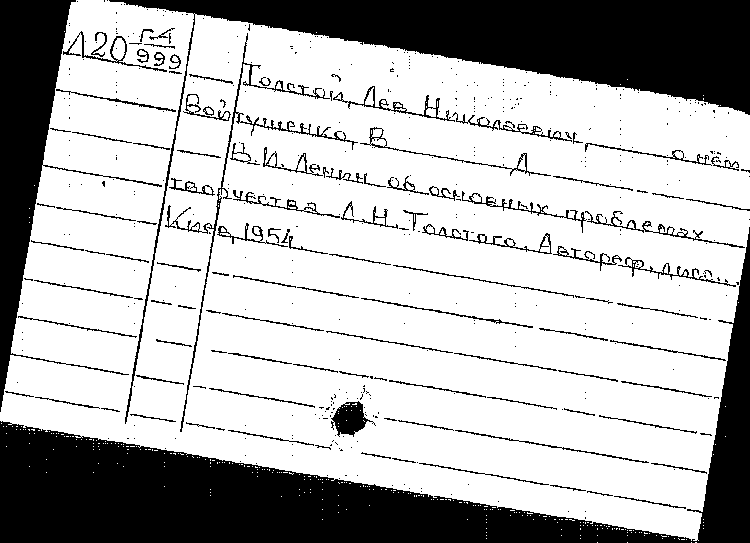 Л20 Г-4/999
Толстой, Лев Николаевич, о нём
Войтушенко, В Д
В.И. Ленин об основных проблемах
творчества Л.Н. Толстого. Автореф. дисс...
Киев, 1954.